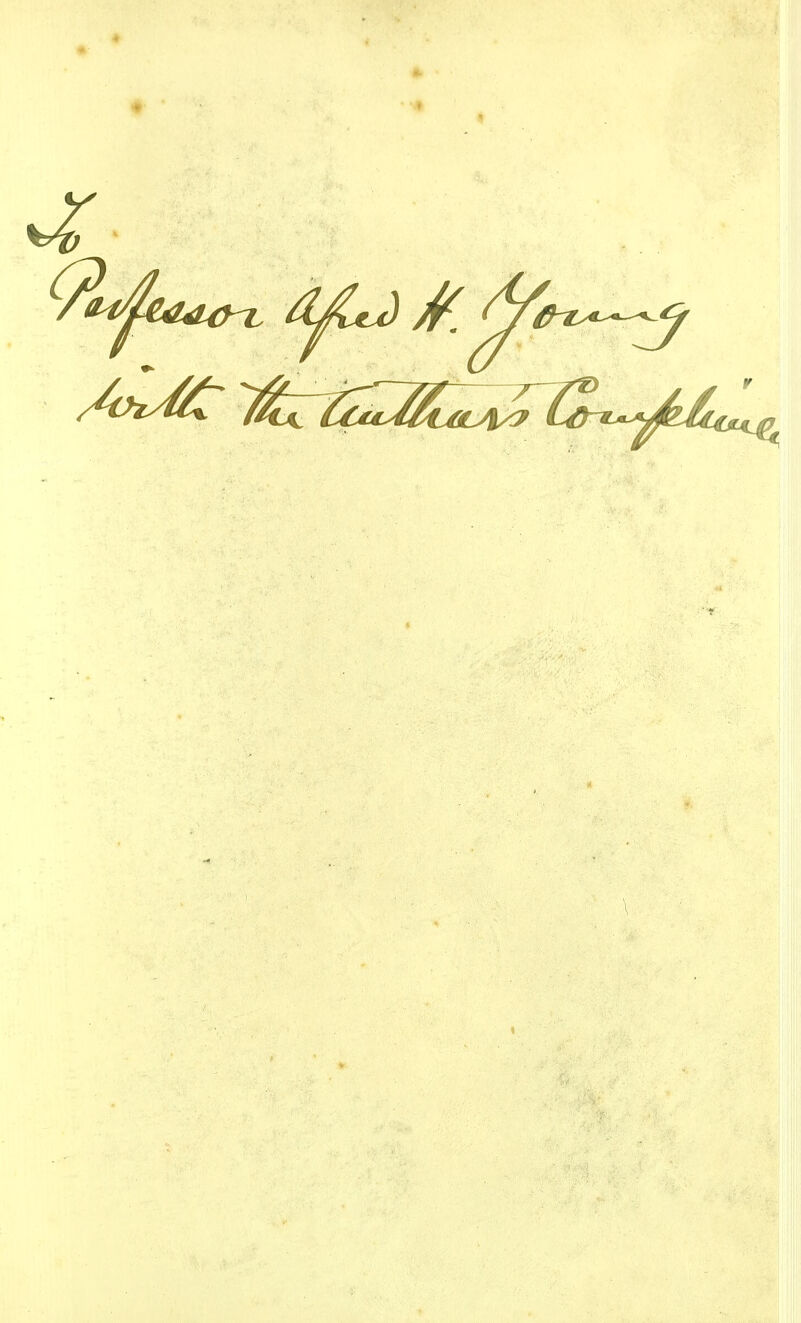 To
Professor Alfred H. Young
with the Author's Complime